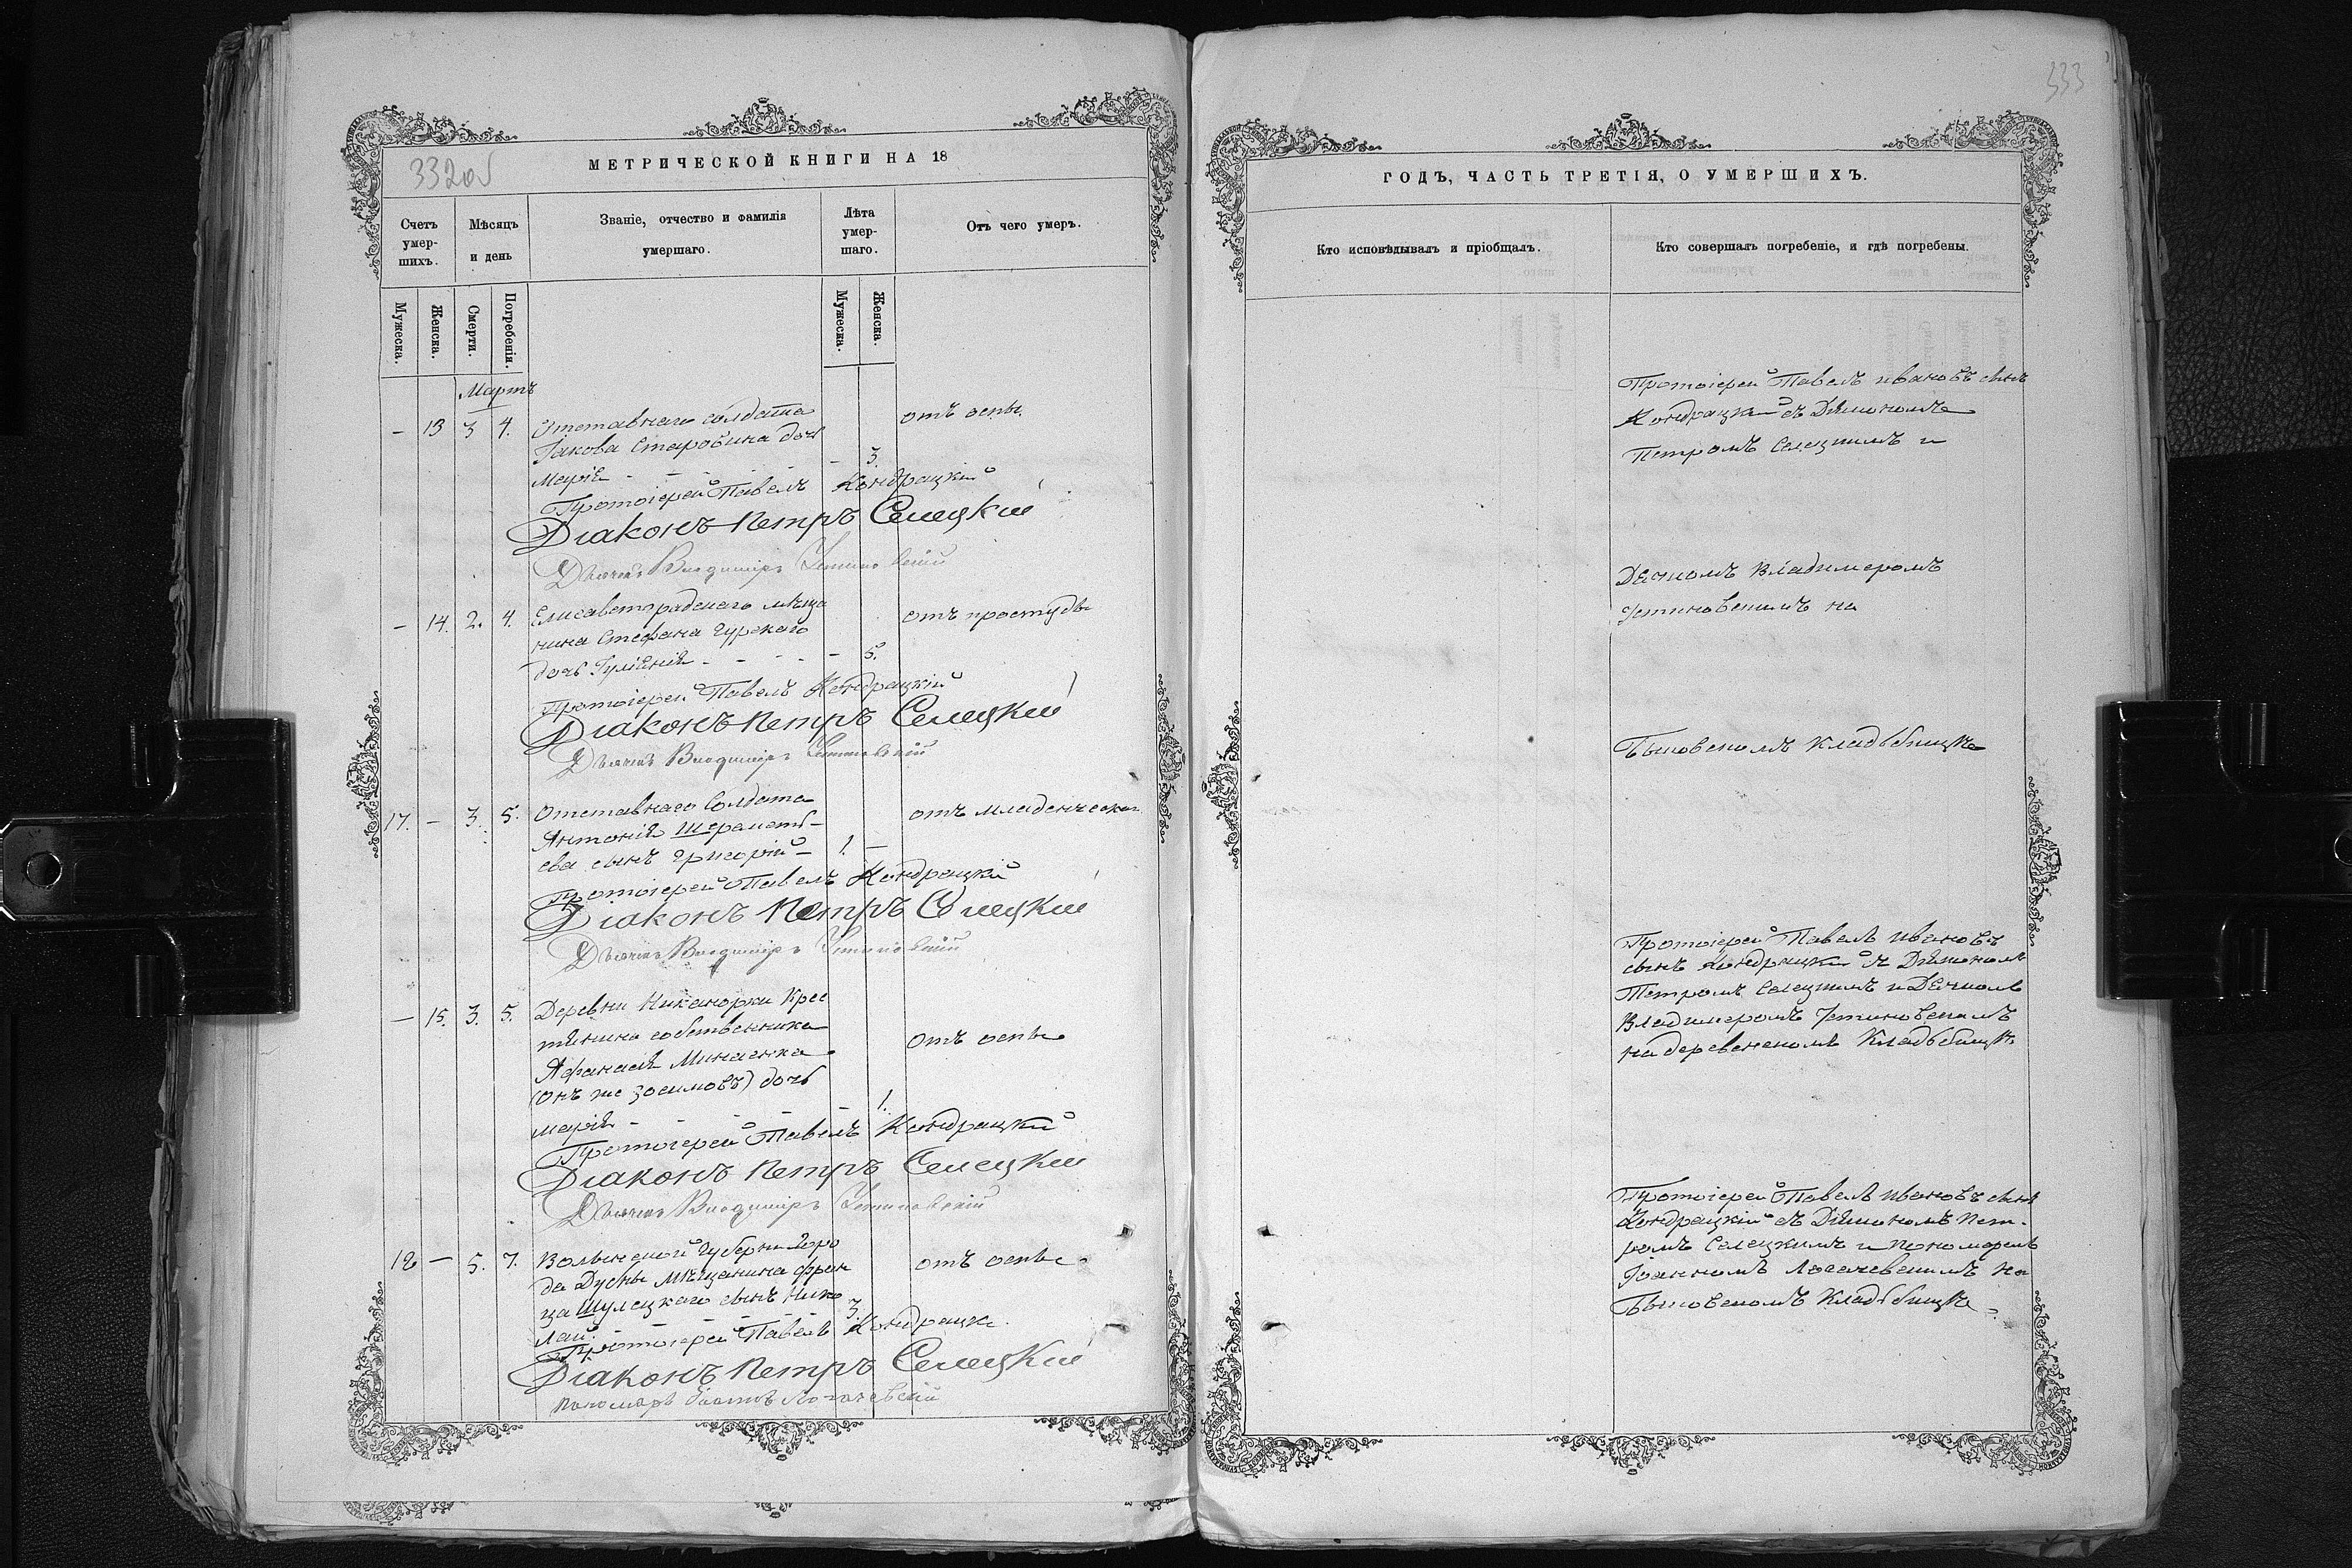 332об
МЕТРИЧЕСКОЙ КНИГИ НА 18
Счетъ умер-шихъ.
Мѣсяцъ и день
Званіе, отчество и фамилія умершаго.
Лѣта умер-шаго.
Отъ чего умеръ.
Мужеска.
Женска.
Смерти.
Погребенія.
Мужеска.
Женска.
Мартъ
– 13 3 4. Отставнаго солдата отъ оспы
Іакова Старобина дочь
Марія – – – – 3.
Протоіерей Павелъ Кондрацкій
Діаконъ Петръ Селецкій
Дьячекъ Владиміръ Устиновскій
– 14. 2. 4. Елисаветградскаго мѣща отъ простуды
нина Стефана Гурскаго
дочь Іуліанія – – – – 5.
Протоіерей Павелъ Кондрацкій
Діаконъ Петръ Селецкій
Дьячекъ Владиміръ Устиновскій
17. – 3. 5. Отставнаго Солдата отъ младенческой
Антонія Шереметь-
ева сынъ Григорій – 1. –
Протоіерей Павелъ Кондрацкій
Діаконъ Петръ Селецкій
Дьячекъ Владиміръ Устиновскій
– 15. 3. 5. Деревни Никанорки Крес
тянина собственника отъ оспы
Афанасія Минаенка
(онъ же Зосимовъ) дочь
Марія – – – – 1.
Протоіерей Павелъ Кондрацкій
Діаконъ Петръ Селецкій
Дьячекъ Владиміръ Устиновскій
18 – 5. 7. Волынской Губерніи Горо отъ оспы
да Дубны Мѣщанина Фран
ца Шулецкаго сынъ Нико
лай. – – – 3.
Протоіерей Павелъ Кондрацкі
Діаконъ Петръ Селецкій
Пономарь Іоаннъ Логачевскій
333
ГОДЪ, ЧАСТЬ ТРЕТІЯ, О УМЕРШИХЪ.
Кто исповѣдывалъ и пріобщалъ.
Кто совершалъ погребеніе, и гдѣ погребены.
Протоіерей Павелъ Ивановъ сынъ
Кондрацкій съ Діякономъ
Петромъ Селецкимъ и
Дячкомъ Владимеромъ
Устиновскимъ на
Быковскомъ Кладьбищѣ
Протоіерей Павелъ Ивановъ
сынъ Кондрацкій съ Діякономъ
Петромъ Селецкимъ и Дячкомъ
Владимеромъ Устиновскимъ
на деревенскомъ Кладьбищѣ
Протоіерей Павелъ Ивановъ сынъ
Кондрацкій съ Діякономъ Пет-
ромъ Селецкимъ и Пономаремъ
Іоанномъ Логачевскимъ на
Быковскомъ Кладьбищѣ.